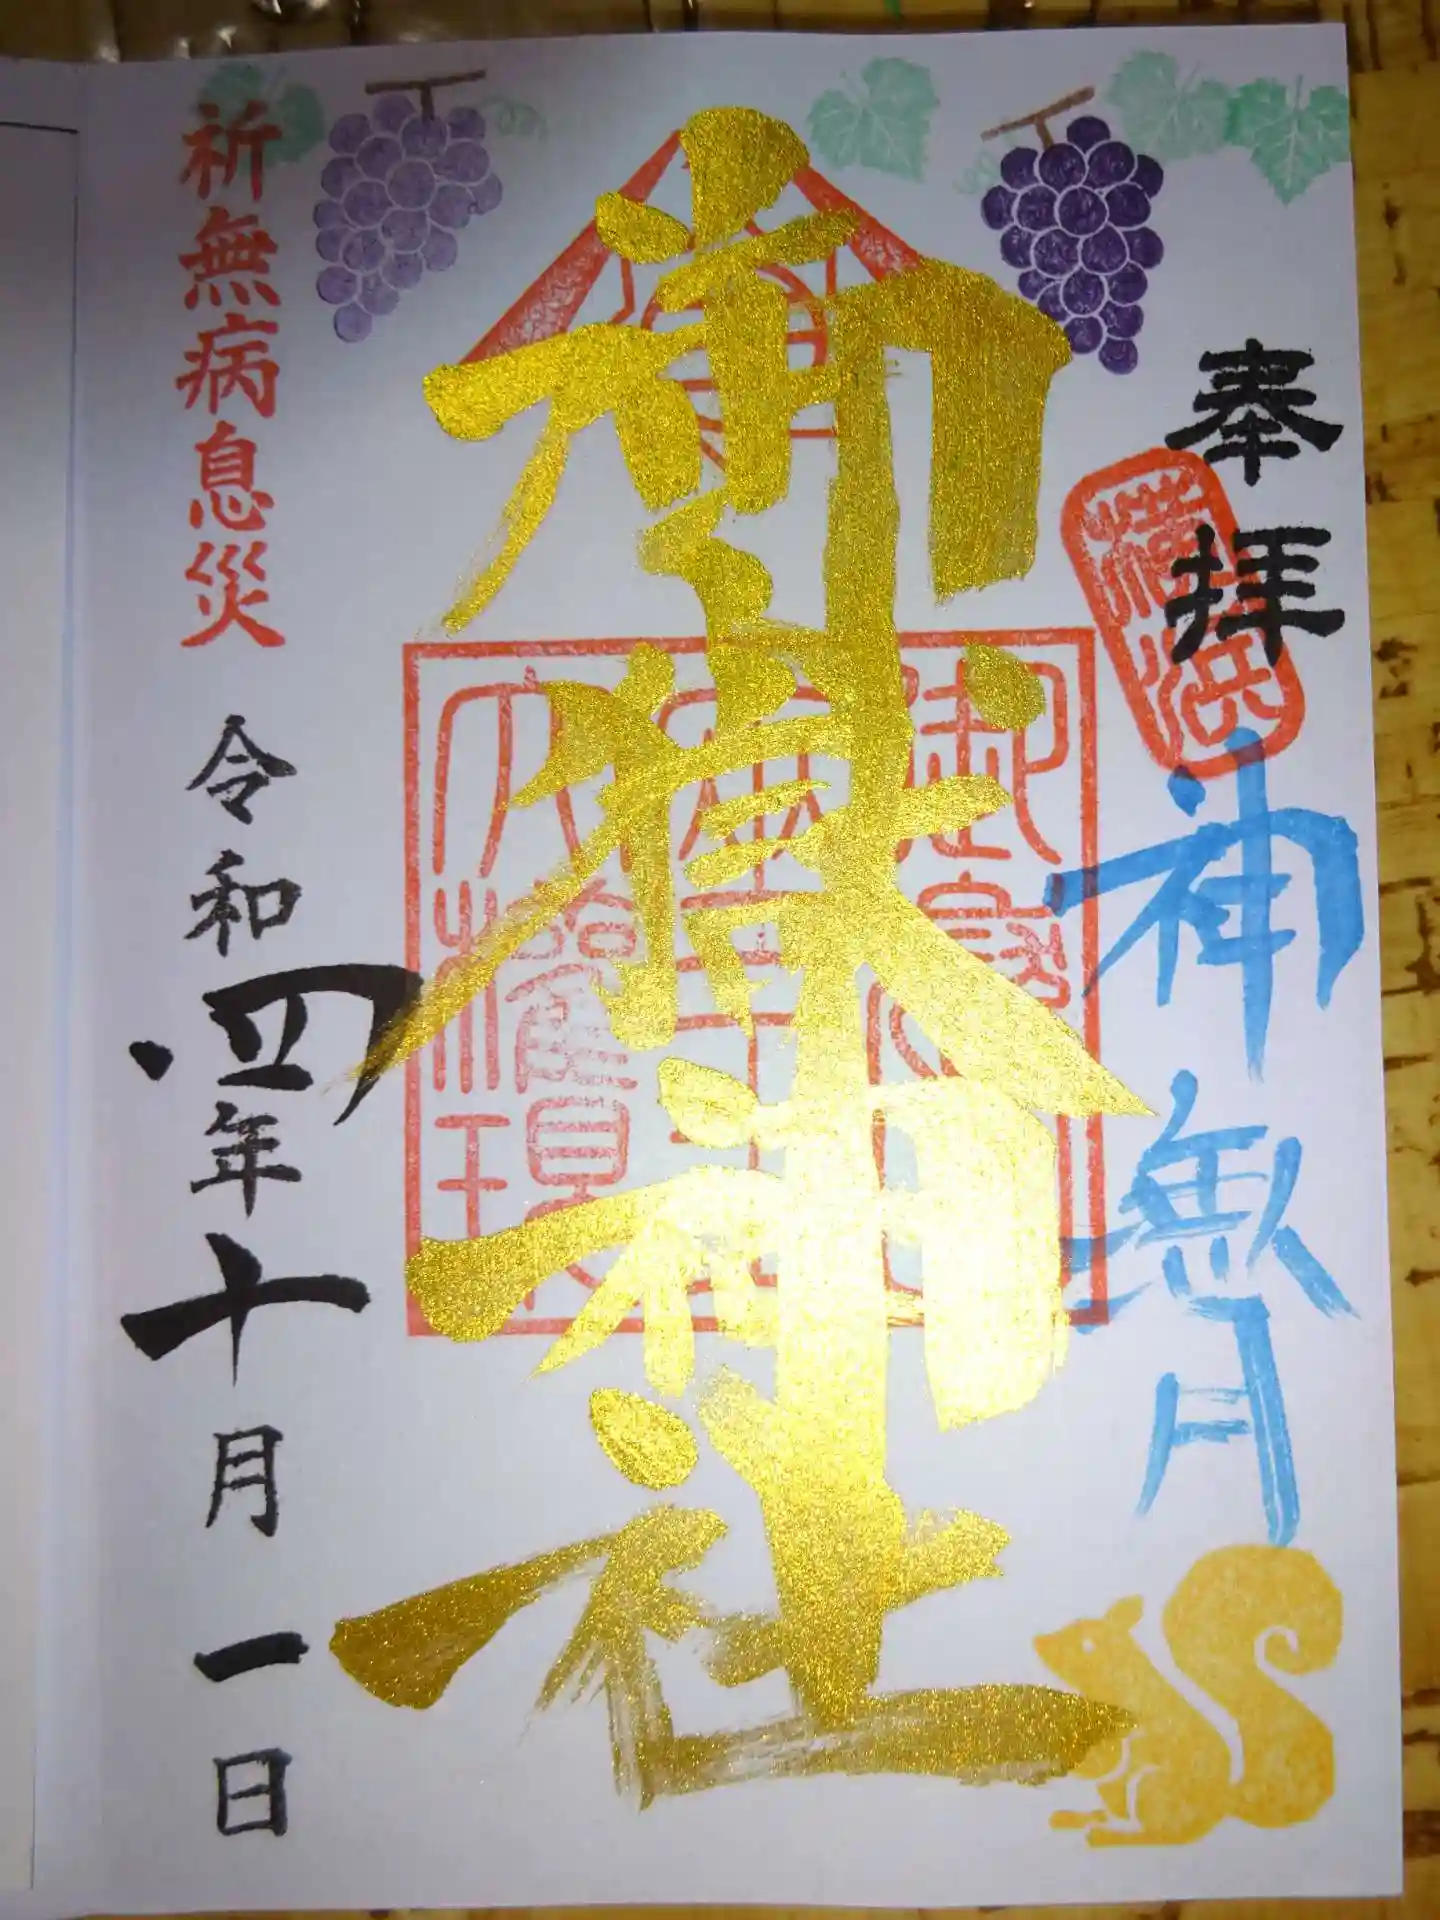 奉拝
横浜
神無月
御嶽神社
祈無病息災
令和四年十月一日